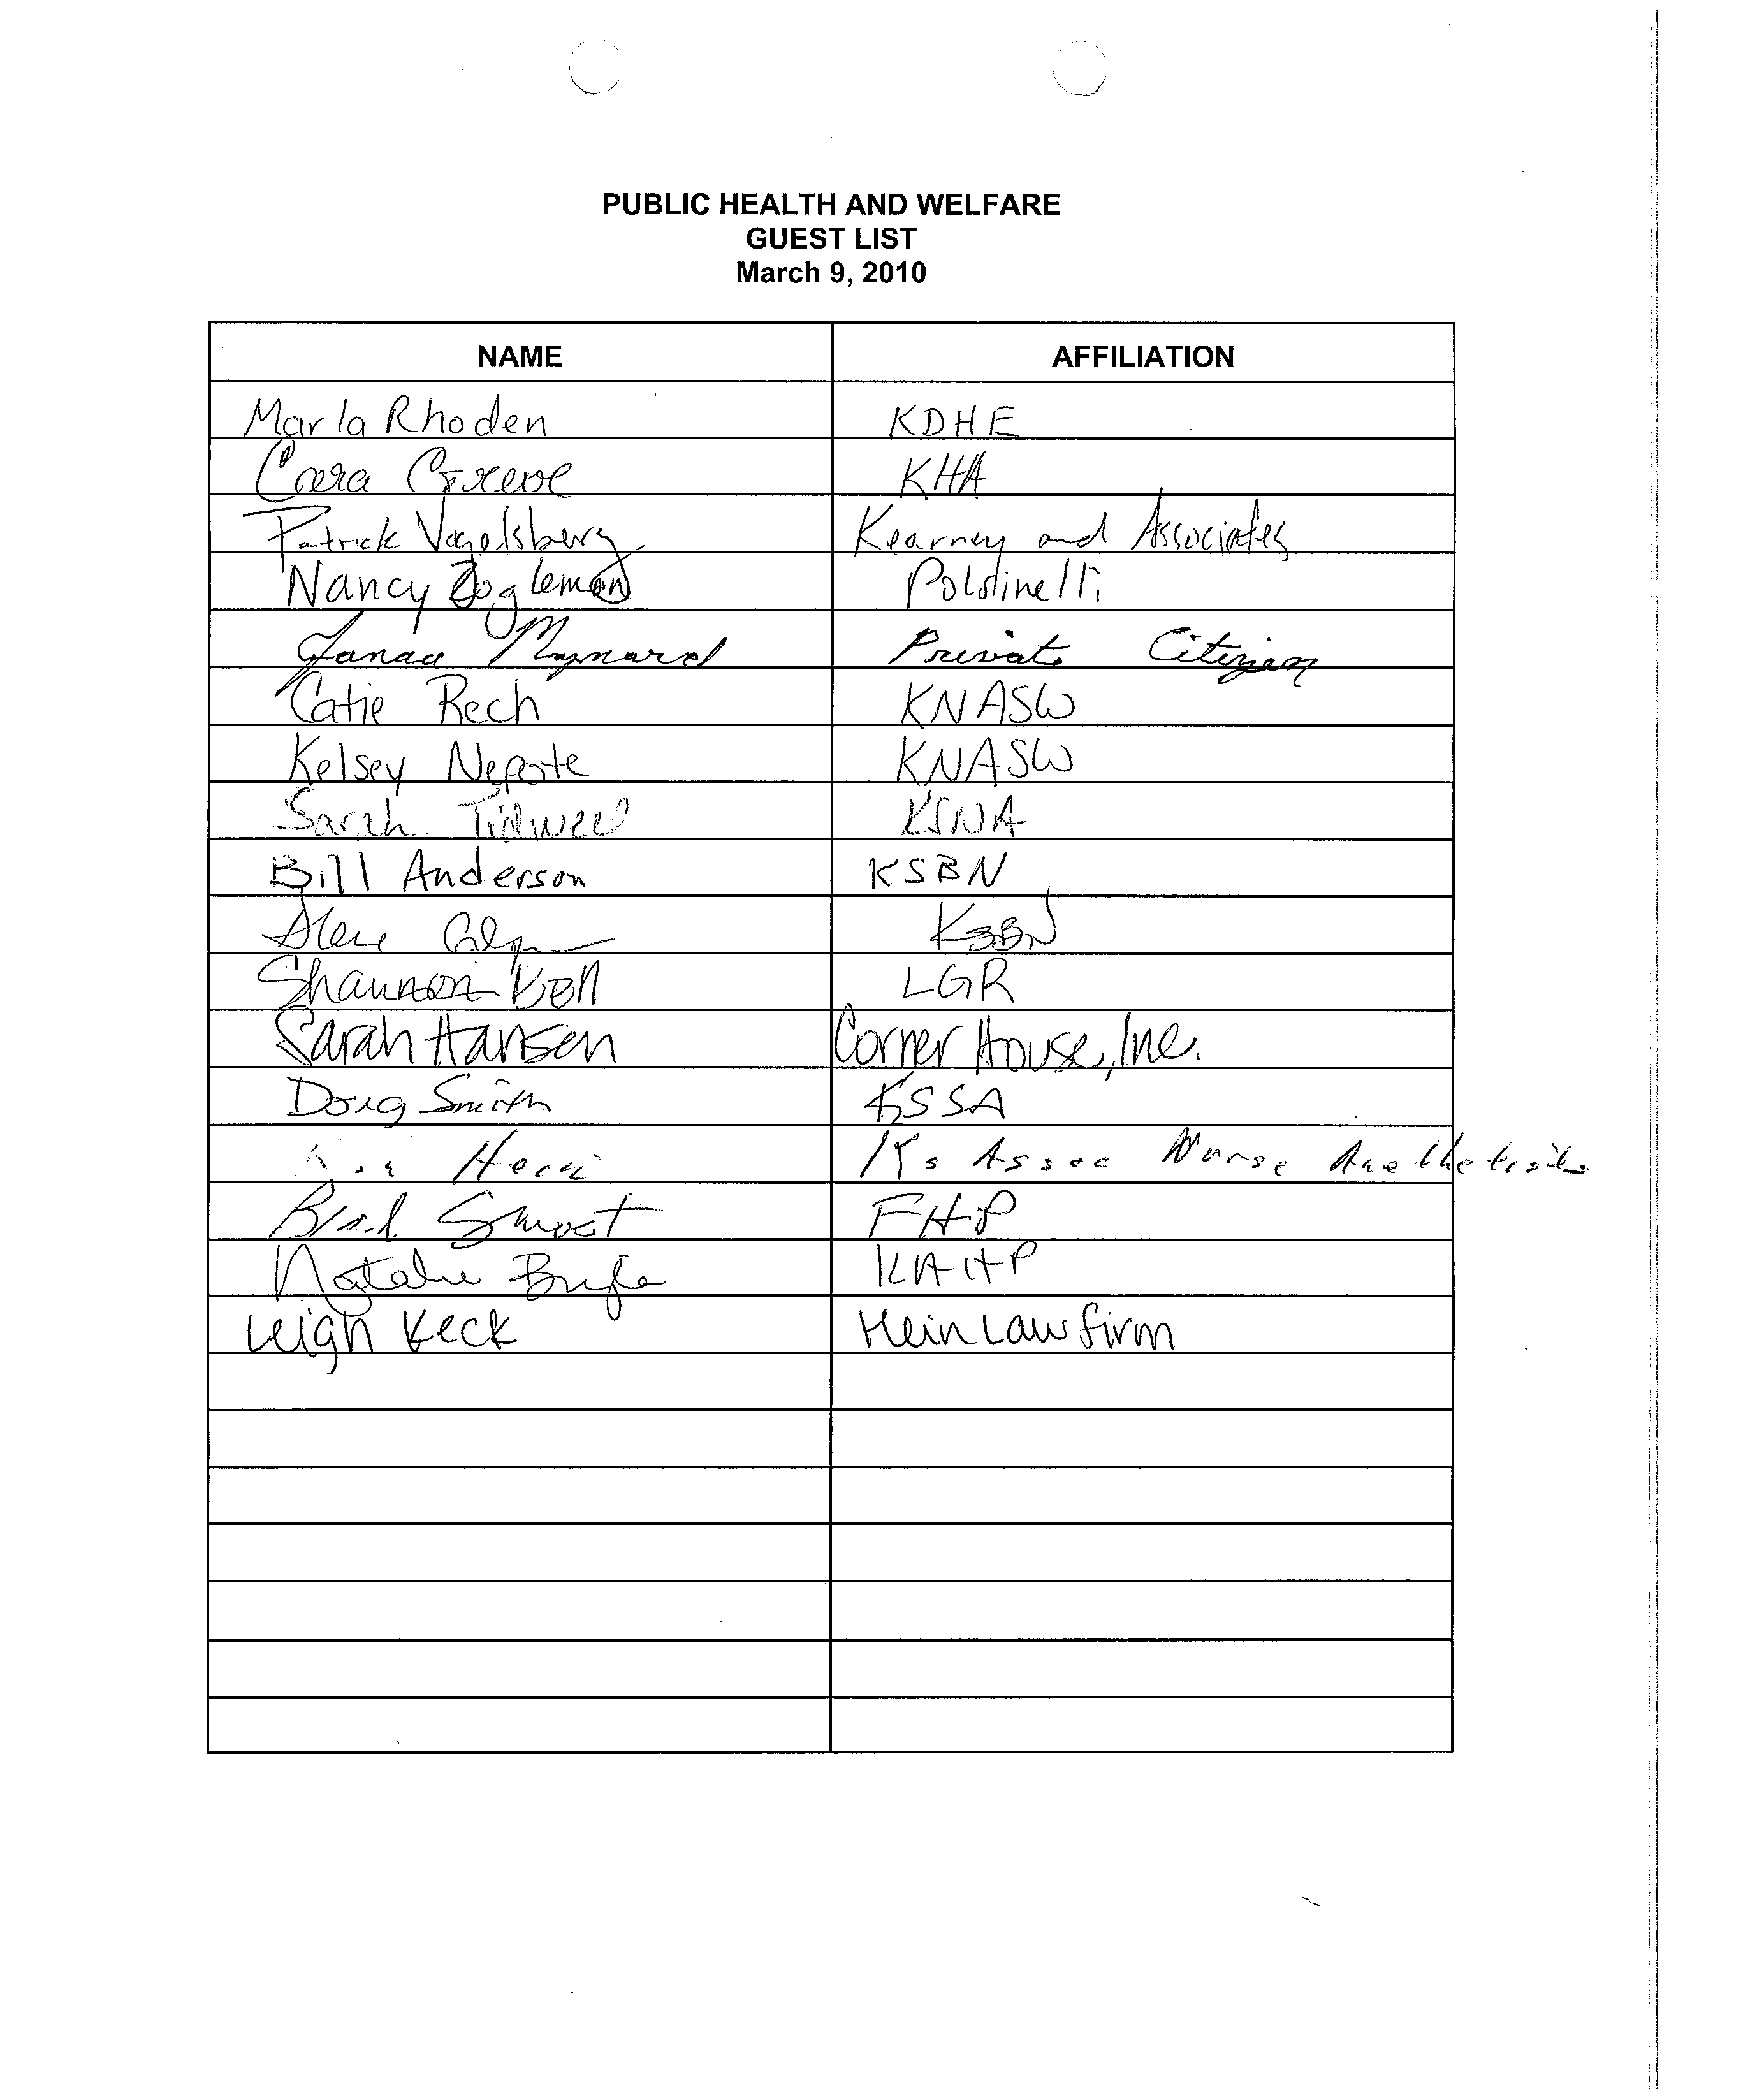 PUBLIC HEALTH AND WELFARE
GUEST LIST
March 9, 2010
NAME AFFILIATION
Marla Rhoden KDHE
Cara Greve KHA
Patrick Vogelsberg Kearney and Associates
Nancy Zogleman Polsinelli
Maynard Private Citizen
Catie Rech KNASW
Kelsey Nepote KNASW
Sarah Tidwell KSNA
Bill Anderson KSBN
KSBN
Shannon Bell LGR
Sarah Hansen Corner House, Inc.
Doug Smith KSSA
Ks Assoc Nurse
Brad Smoot FHP
Natalie KAHP
Leigh Keck Hein Law firm